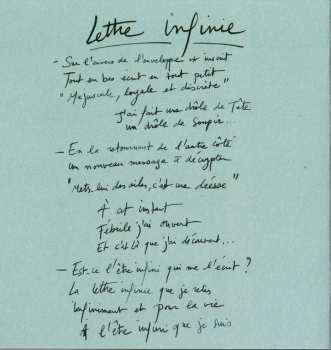 Lettre infinie
- Sur l'envers de l'enveloppe est inscrit
Tout en bas écrit en tout petit
"Majuscule, loyale et discrète"
J'ai fait une drôle de Tête
un drôle de Soupir...
- En la retournant de l'autre côté
Un nouveau message à décrypter
"Mets-lui des ailes, c'est une déesse"
À cet instant
Fébrile j'ai ouvert
Et c'est là que j'ai découvert...
- Est-ce l'être infini qui me l'écrit ?
La lettre infinie que je relis
Infiniment et pour la vie
À l'être infini que je suis